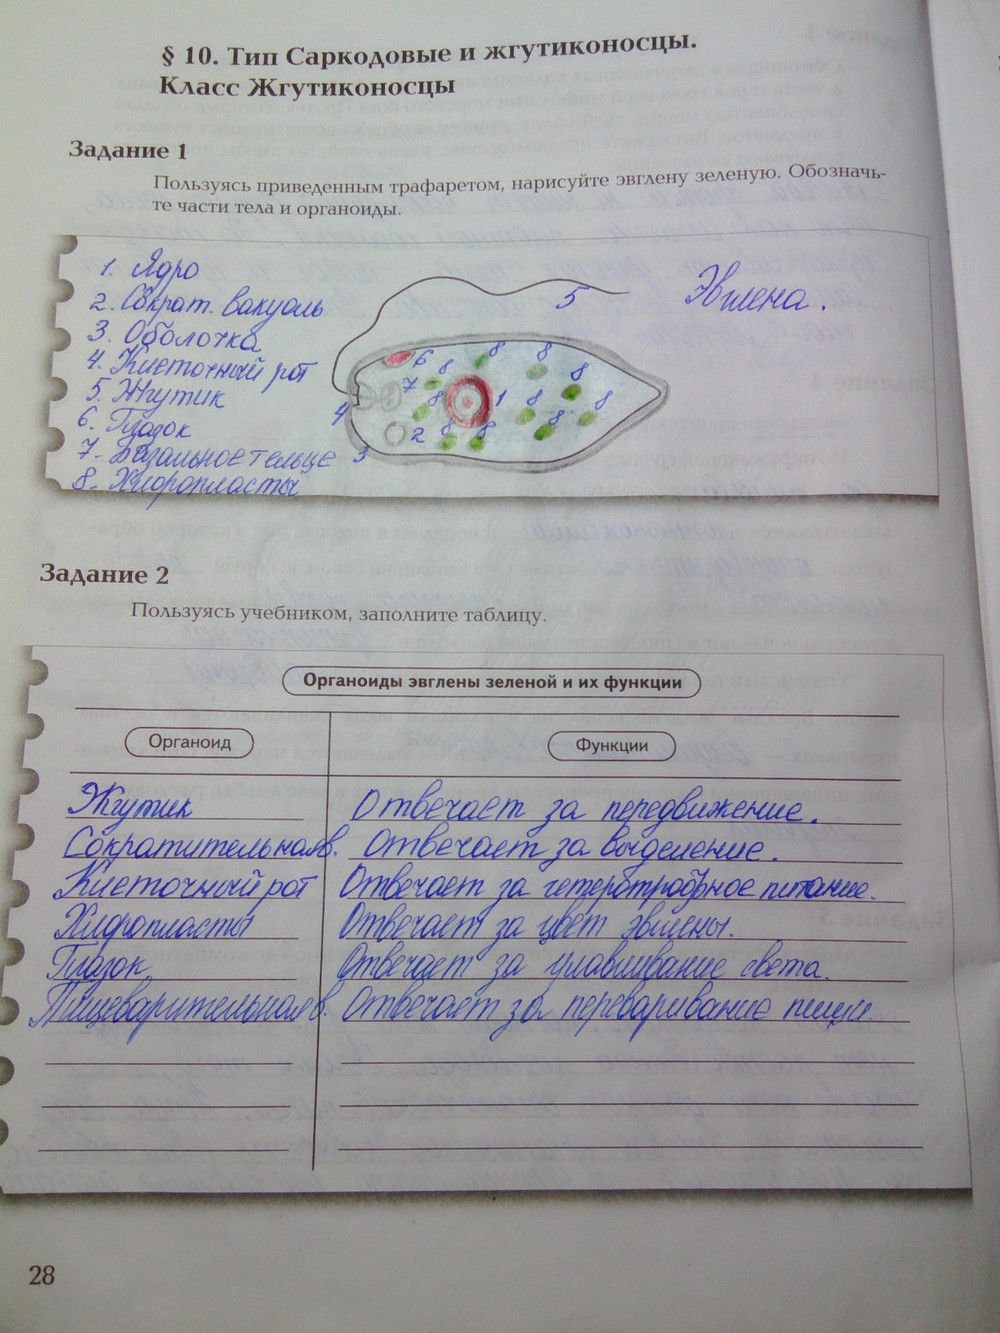 § 10. Тип Саркодовые и жгутиконосцы.
Класс Жгутиконосцы
Задание 1
Пользуясь приведенным трафаретом, нарисуйте эвглену зеленую. Обозначь-
те части тела и органоиды.
1. Ядро
2. Сократ. вакуоль
3. Оболочка
4. Клеточный рот
5. Жгутик
6. Глазок
7. Базальное тельце
8. Хлоропласты
Эвглена.
5
6 8 8 8
7 8 1 8 8
4 2 8 8
3
Задание 2
Пользуясь учебником, заполните таблицу.
Органоиды эвглены зеленой и их функции
Органоид Функции
Жгутик Отвечает за передвижение.
Сократительная в. Отвечает за выделение.
Клеточный рот Отвечает за гетеротрофное питание.
Хлоропласты Отвечает за цвет эвглены.
Глазок Отвечает за улавливание света.
Пищеварительная в. Отвечает за переваривание пищи.
28